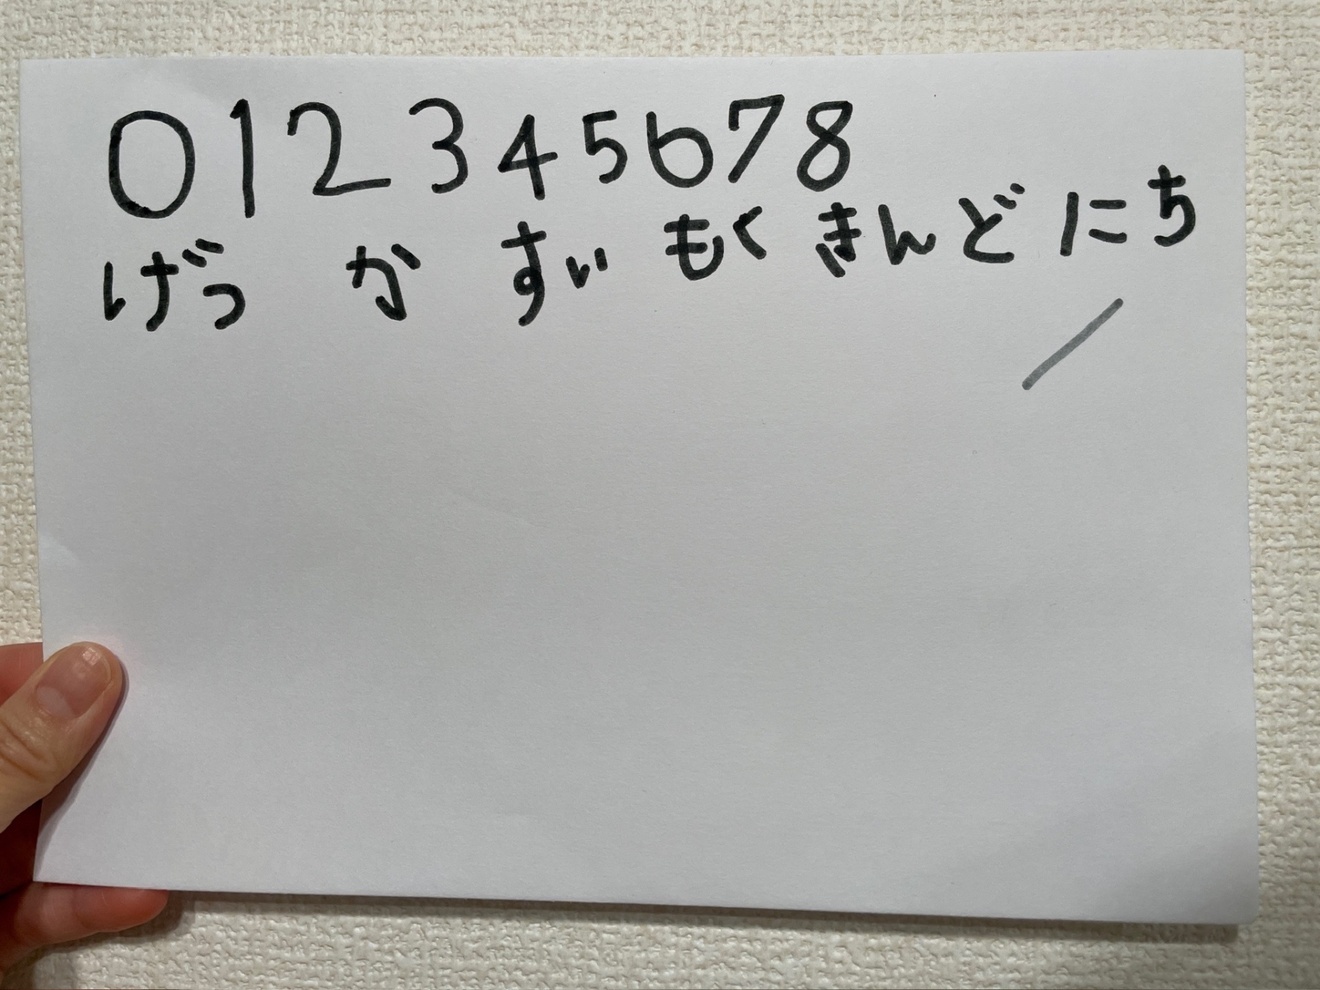 0 1 2 3 4 5 6 7 8
げつ か すい もく きん ど にち